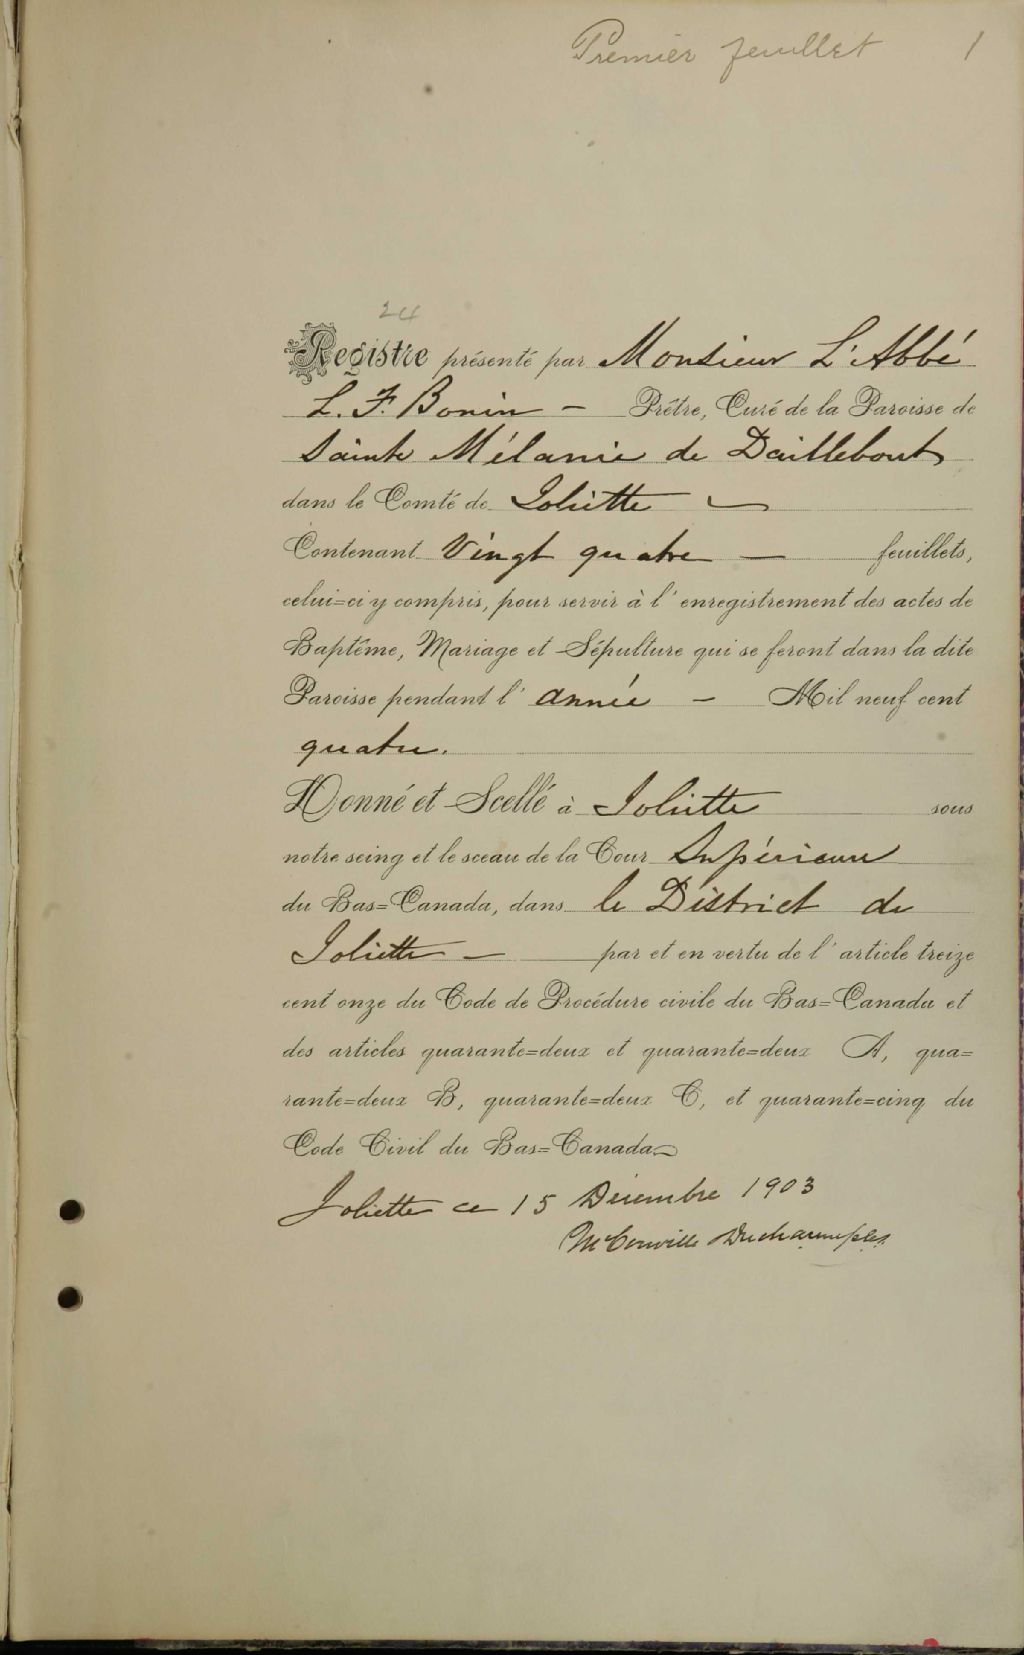 Premier feuillet 1
24
Registre présenté par Monsieur L'Abbé
L. F. Bonin — Prêtre, Curé de la Paroisse de
Sainte Mélanie de Daillebout
dans le Comté de Joliette —
Contenant Vingt quatre — feuillets,
celui=ci y compris, pour servir à l'enregistrement des actes de
Baptême, Mariage et Sépulture qui se feront dans la dite
Paroisse pendant l'année — Mil neuf cent
quatre.
Donné et Scellé à Joliette sous
notre seing et le sceau de la Cour Supérieure
du Bas=Canada, dans le District de
Joliette — par et en vertu de l'article treize
cent onze du Code de Procédure civile du Bas=Canada et
des articles quarante=deux et quarante=deux A, qua=
rante=deux B, quarante=deux C, et quarante=cinq du
Code Civil du Bas=Canada.
Joliette ce 15 Décembre 1903
McConville Ducharme